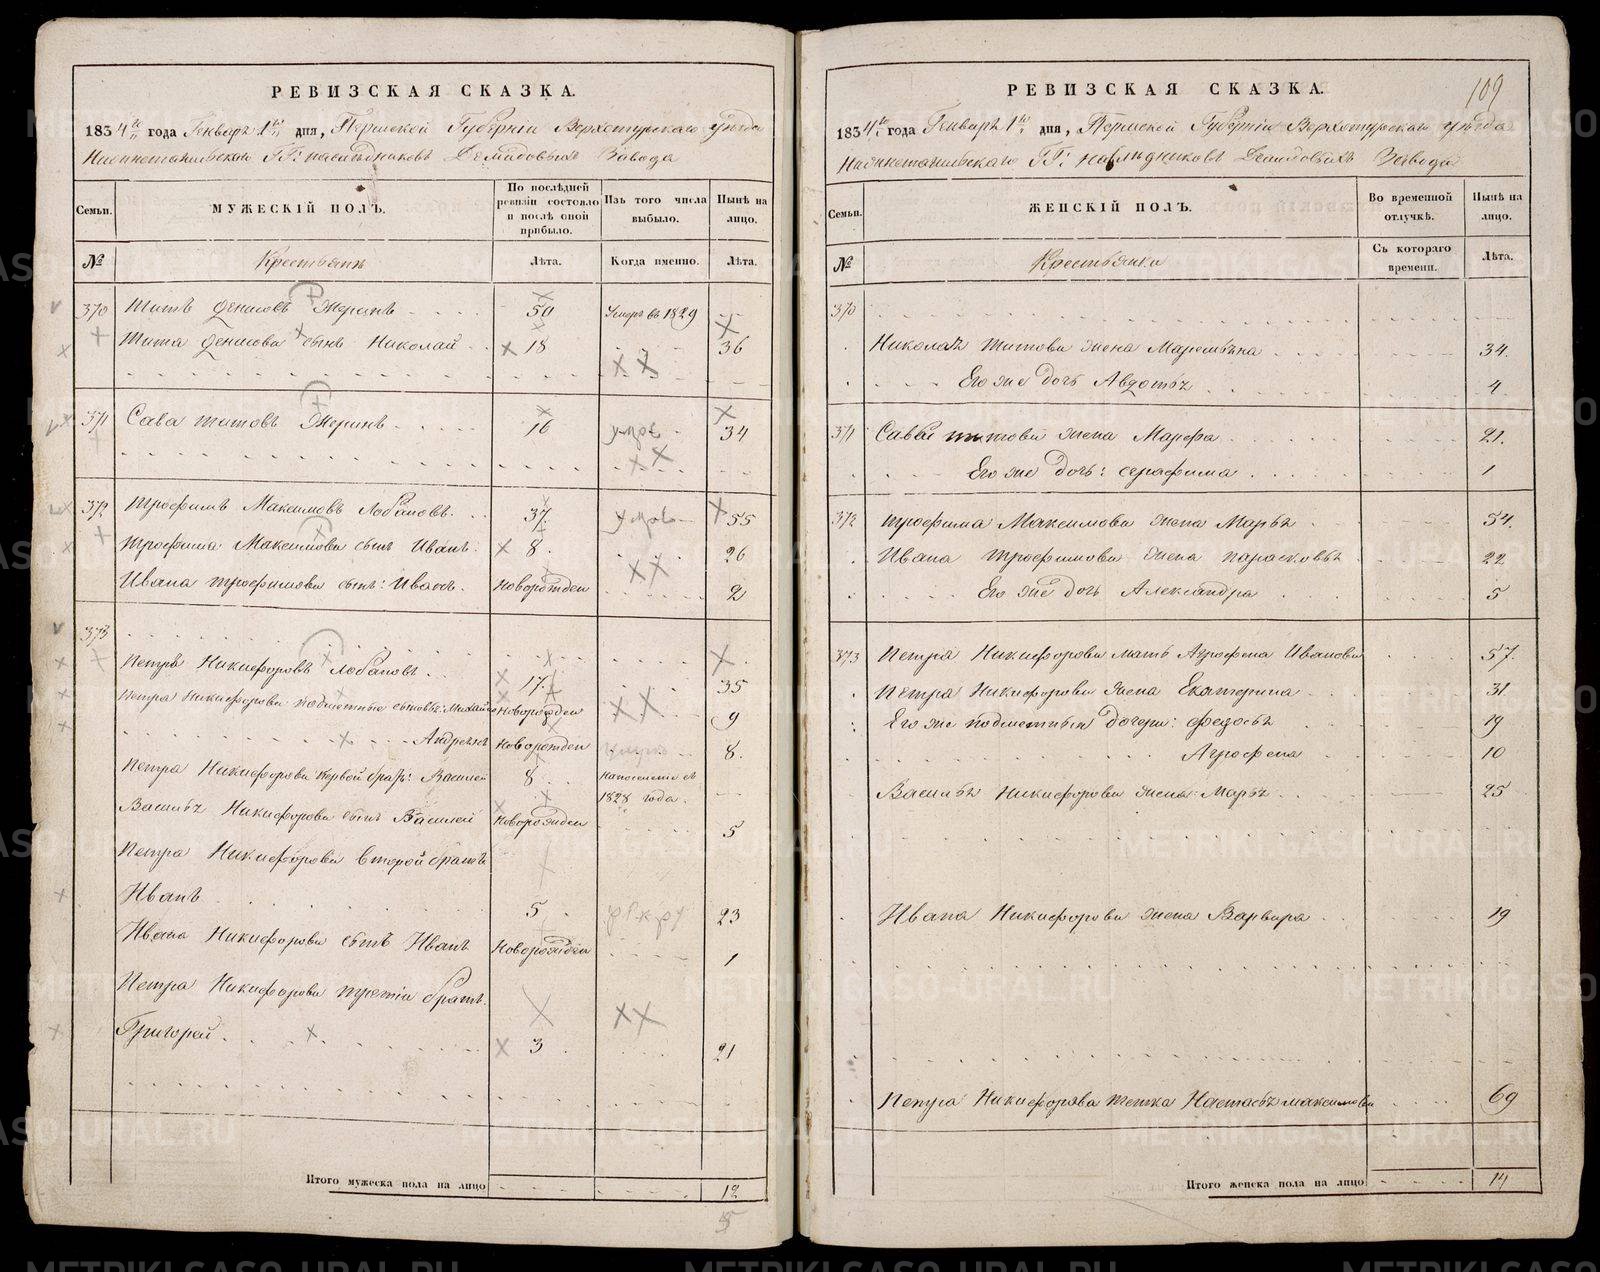 РЕВИЗСКАЯ СКАЗКА.
1834го года Генваря 1го дня, Пермской Губернии Верхотурскаго уѣзда
Нижнетагильскаго ГГ: наслѣдниковъ Демидовыхъ Завода
Семьи.
МУЖЕСКІЙ ПОЛЪ.
По послѣдней ревизіи состояло и послѣ оной прибыло.
Изъ того числа выбыло.
Нынѣ на лицо.
№
Крестьянъ
Лѣта.
Когда именно.
Лѣта.
370 Титъ Денисовъ 50 Умеръ въ 1829
Тита Денисова сынъ Николай 18 36
371 Сава Титовъ 16 умре 34
372 Трофимъ Максимовъ Лобановъ. 37 умре 55
Трофима Максимова сынъ Иванъ. 8. 26
Ивана Трофимова сынъ: Иванъ. Новорожден 2
373
Петръ Никифоровъ Лобановъ. 17. 35
Петра Никифорова сыновья: Михайло Новорожден 9
Андреянъ Новорожден 8.
Петра Никифорова первой братъ: Василей 8
1828 года.
Василья Никифорова сынъ Василей Новорожден 5
Петра Никифорова второй братъ
Иванъ 5 23
Ивана Никифорова сынъ Иванъ Новорожден 1
Петра Никифорова третій братъ
Григорей. 3 21
Итого мужеска пола на лицо 12
5
109
РЕВИЗСКАЯ СКАЗКА.
1834го года Генваря 1го дня, Пермской Губерніи Верхотурскаго уѣзда
Нижнетагильскаго ГГ: наслѣдниковъ Демидовыхъ Завода
Семьи.
ЖЕНСКІЙ ПОЛЪ.
Во временной отлучкѣ.
Нынѣ на лицо.
№
Крестьянки
Съ котораго времени.
Лѣта.
370
Николая Титова жена Маремьяна 34.
Его же дочь Авдотья 4
371 Савы Титова жена Марфа 21.
Его же дочь: серафима 1
372 Трофима Максимова жена Марья 54.
Ивана Трофимова жена парасковья 22
Его же дочь Александра 5
373 Петра Никифорова мать Агрофена Иванова 57.
Петра Никифорова жена Екатерина 31
Его же дочери: федосья 19
Агрофена 10
Василья Никифорова жена Марья 25
Ивана Никифорова жена Варвара 19
Петра Никифорова тетка Настасья максимова 69
Итого женска пола на лицо 14
METRIKI.GASO-URAL.RU